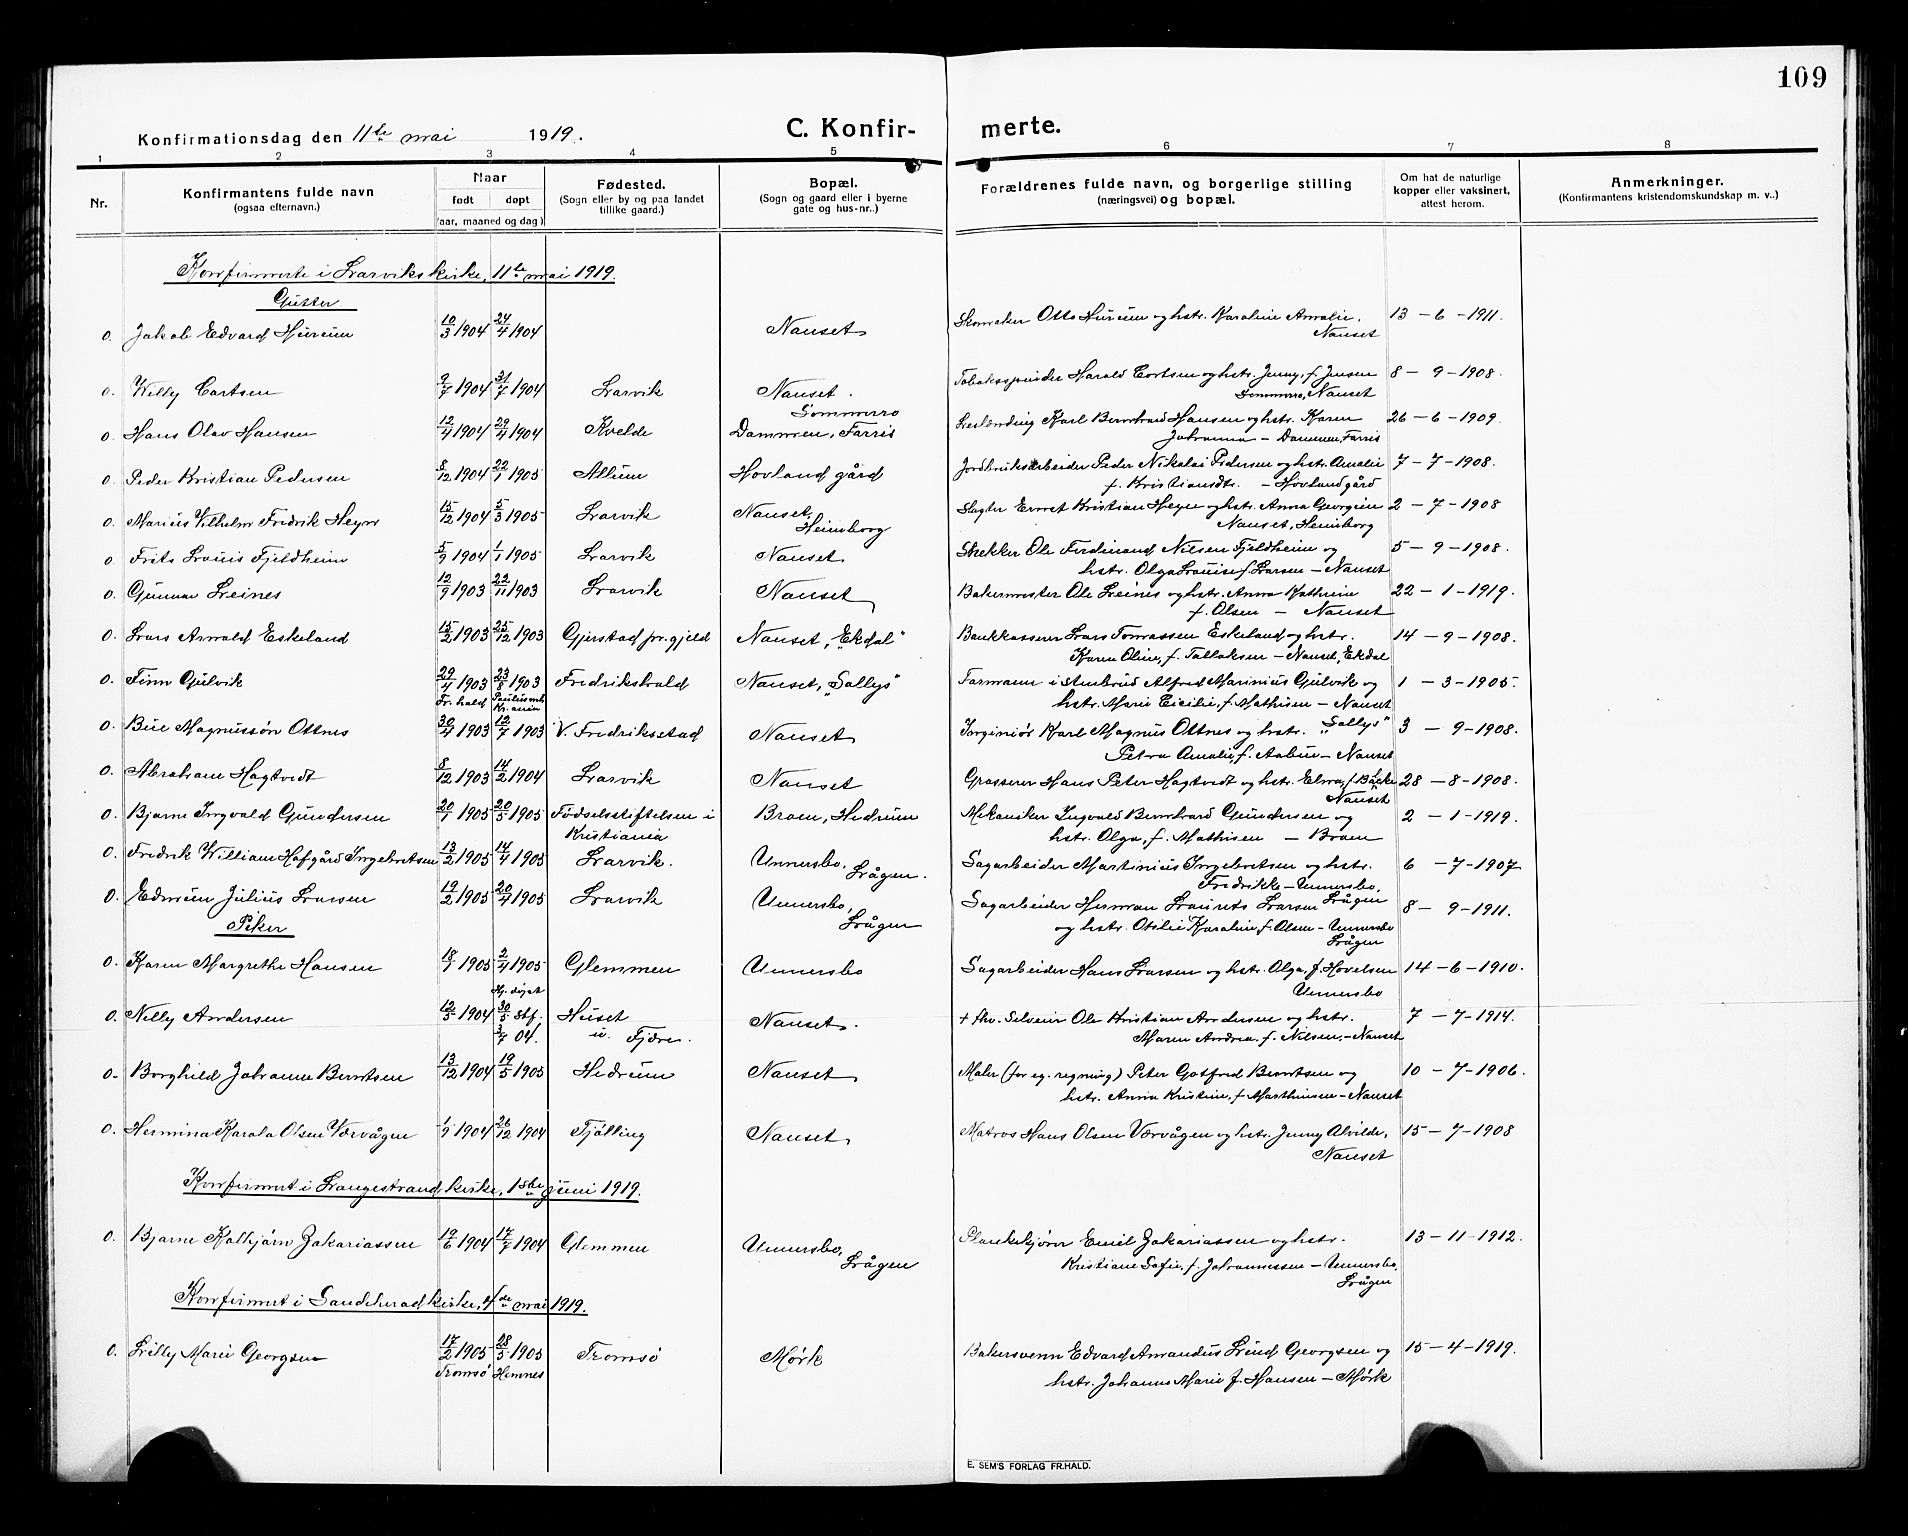 109
Konfirmationsdag den 11te mai 1919.
C. Konfir- merte.
1 2 3 4 5 6 7 8
Nr.
Konfirmantens fulde navn
(ogsaa efternavn.)
Naar
født døpt
(aar, maaned og dag)
Fødested.
(Sogn eller by og paa landet
tillike gaard.)
Bopæl.
(Sogn og gaard eller i byerne
gate og hus-nr..)
Forældrenes fulde navn, og borgerlige stilling
(næringsvei) og bopæl.
Om hat de naturlige
kopper eller vaksinert,
attest herom.
Anmerkninger.
(Konfirmantens kristendomskundskap m. v..)
Konfirmerte i Larviks kirke, 11te mai 1919.
Gutter
0. Jakob Edvard Hurum 10/3 1904 24/4 1904 Nanset Skomaker Otto Hurum og hstr. Karoline Amalie, 13-6-1911.
Nanset
0. Willy Cortsen 9/7 1904 31/7 1904 Larvik Nanset. Tobaksspinder Harald Cortsen og hstr. Jenny, f. Jensen 8-9-1908.
Sommerro Sommerro, Nanset
0. Hans Olav Hansen 12/4 1904 29/4 1904 Kvelde Dammen, Farris Karl Bernhard Hansen og hstr. Karen 26-6-1909.
Johanna - Dammen, Farris
0. Peder Kristian Pedersen 8/12 1904 22/1 1905 Allum Hovland gård Jordbruksarbeider Peder Nikolai Pedersen og hstr. Amalie 7-7-1908.
f. Kristiansdtr. - Hovland gård
0. Marius Vilhelm Fredrik Heyn 15/12 1904 5/3 1905 Larvik Nanset, Slagter Ernst Kristian Heyn og hstr. Anna Georgine 2-7-1908
Heimborg Nanset, Heimborg
0. Frits Louis Fjeldheim 5/9 1904 1/1 1905 Larvik Nanset Strekker Ole Ferdinand Nilsen Fjeldheim og 5-9-1908.
hstr. Olga Louise f. Larsen - Nanset
0. Gunnar Leines 12/9 1903 22/11 1903 Larvik Nanset Bakermester Ole Leines og hstr. Anna Kathrine 22-1-1919.
f. Olsen - Nanset
0. Lars Arvald Eskeland 15/2 1903 25/12 1903 Gjerstad pr.gjeld Nanset, "Ekdal" Bankkasserer Lars Tomassen Eskeland og hstr. 14-9-1908.
Karen Oline, f. Tallaksen - Nanset, Ekdal
0. Finn Gulvik 29/4 1903 23/8 1903 Fredrikshald Nanset, "Sollys" Formann i Stenbrud Alfred Marinius Gulvik og 1-3-1905.
Fr. hald Paulus mh. Kr.ania hstr. Marie Cicilie, f. Mathisen - Nanset
"Sollys"
0. Bue Magnussøn Ottnes 30/4 1903 12/7 1903 V. Fredriksstad Nanset Ingeniør Karl Magnus Ottnes og hstr. 3-9-1908.
Petra Amalie, f. Aabue - Nanset
0. Abraham Hagtvedt 8/12 1903 14/2 1904 Larvik Nanset Grosserer Hans Peter Hagtvedt og hstr. Elna, f. Bäcke 28-8-1908.
Nanset
0. Bjarne Ingvald Gundersen 20/1 1905 20/5 1905 Fødselsstiftelsen i Bram, Hedrum Mekaniker Ingvald Bernhard Gundersen og 2-1-1919.
Kristiania hstr. Olga, f. Mathisen - Bram
0. Fredrik William Hafgård Ingebretsen 13/2 1905 14/4 1905 Larvik. Unnersbo. Sagarbeider Martinius Ingebretsen og hstr. 6-7-1907
Lågen. Fredrikke - Unnersbo, Lågen
0. Edmun Julius Larsen 19/2 1905 20/4 1905 Larvik Unnersbo, Sagarbeider Herman Laurits Larsen 8-9-1911.
Lågen og hstr. Otilie Karoline, f. Olsen - Unnersbo
Lågen
Piker
0. Karen Margrethe Hansen 18/1 1905 2/4 1905 Glemmen Unnersbo Sagarbeider Hans Larsen og hstr. Olga, f. Hovelsen 14-6-1910.
Unnersbo
0. Nelly Andersen 12/5 1904 Hj. døpt 30/5 stf. 3/7 04. Huset Nanset. + Ole Kristian Andersen og hstr. 7-7-1914.
u. Fjære. Maren Andrea, f. Nilsen, - Nanset
0. Borghild Johanne Berntsen 13/12 1904 19/5 1905 Hedrum Nanset Maler (for eg. regning) Peter Gotfred Berntsen og 10-7-1906.
hstr. Anna Kristine, f. Marthinsen - Nanset
0. Hermina Karala Olsen Værvågen 1/9 1904 26/12 1904 Tjølling Nanset Matros Hans Olsen Værvågen og hstr. Jenny Alvilde, 15-7-1908
Nanset
Konfirmert i Langestrand kirke, 1ste juni 1919.
0. Bjarne Kolbjørn Zakariassen 19/6 1904 17/7 1904 Glemmen Unnersbo, Plankekjører Emil Zakariassen og hstr. 13-11-1912.
Lågen Kristiane Sofie, f. Johannessen - Unnersbo,
Lågen
Konfirmert i Sandeherad kirke, mai 1919.
0. Lilly Marie Georgsen 17/2 1905 28/5 1905 Tromsø Mørk Bakersvenn Edvard Amandus Lund Georgsen og 15-4-1919.
Tromsø Hemnes hstr. Johanne Marie f. Hansen - Mørk
E. SEM'S FORLAG FR.HALD.